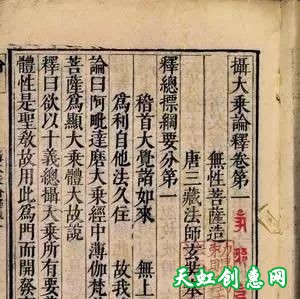 攝大乘論釋卷第一
無性菩薩造
唐三藏法師玄奘奉
釋總標綱要分第一
稽首大覺諸如來 無上
為利自他法久住 故我
論曰阿毗達磨大乘經中薄伽梵
菩薩為顯大乘體大故說
釋曰欲以十義總攝大乘所有要
體性是聖教故用此為門而開發
天虹创意网